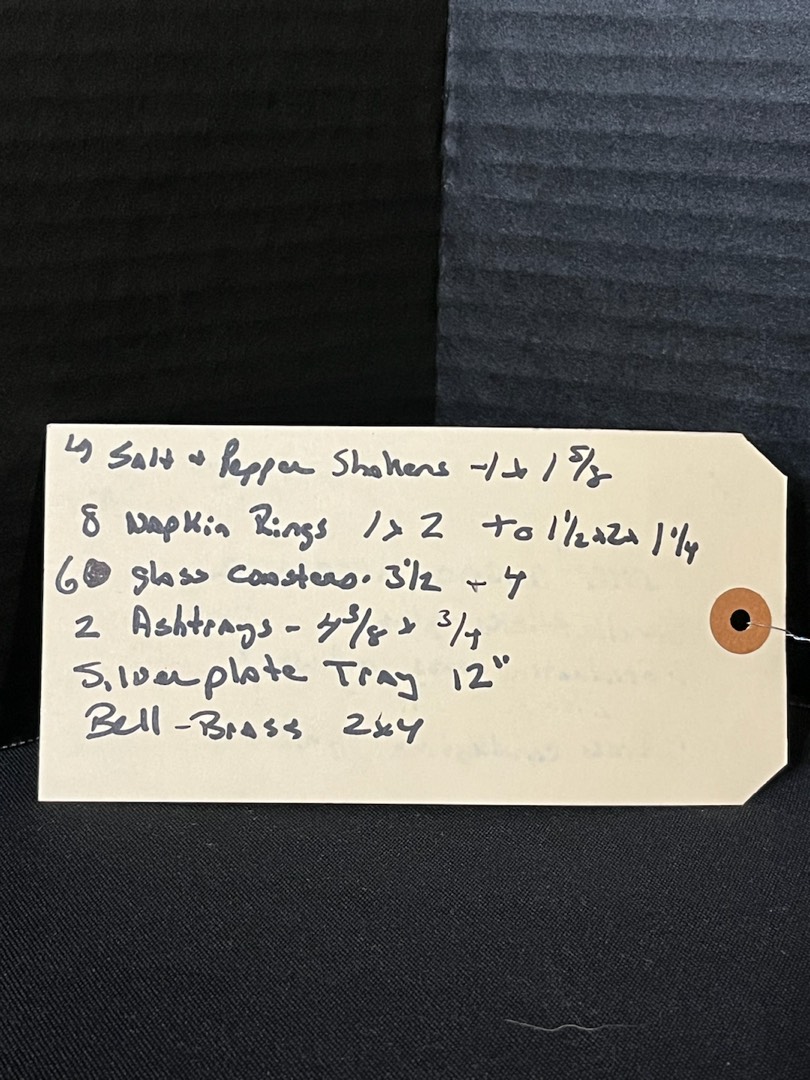 4 Salt + Pepper Shakers - 1 x 1 5/8
8 Napkin Rings 1 x 2 to 1 1/2 x 2 x 1 1/4
6 glass coasters. 3 1/2 + 4
2 Ashtrays - 4 3/8 x 3/4
Silverplate Tray 12"
Bell - Brass 2x4